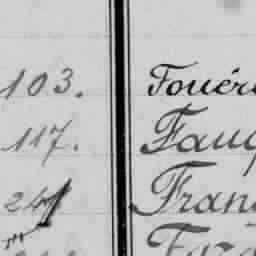 103. Fouér
117. Fauq
241 Fran